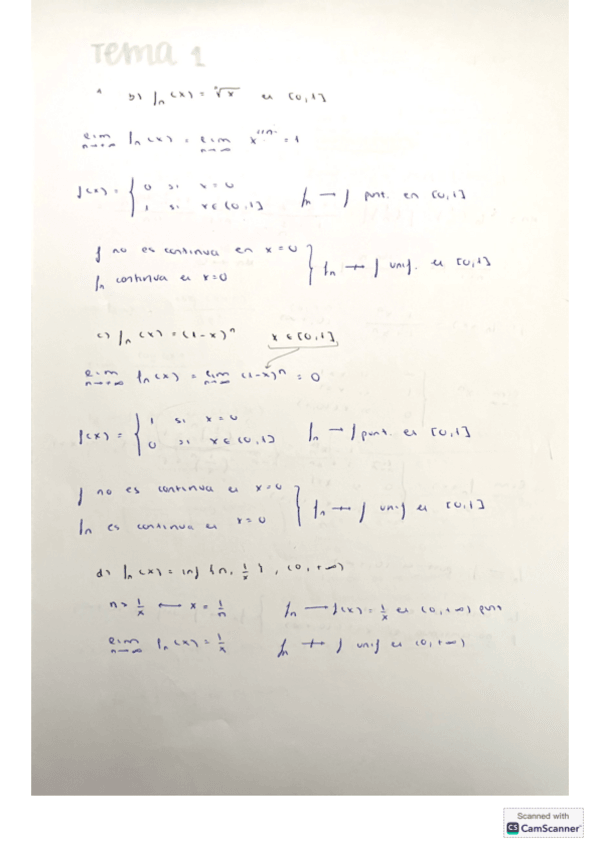 Tema 1
b) fn(x) = ⁿ√x en [0,1]
lim n→∞ fn(x) = lim n→∞ x^(1/n) = 1
f(x) = { 0 si x=0
1 si x∈(0,1] fn → f punt. en [0,1]
f no es continua en x=0
fn continua en x=0 } fn ↛ f unif. en [0,1]
c) fn(x) = (1-x)ⁿ x∈[0,1]
lim n→∞ fn(x) = lim n→∞ (1-x)ⁿ = 0
f(x) = { 1 si x=0
0 si x∈(0,1] fn → f punt. en [0,1]
f no es continua en x=0
fn es continua en x=0 } fn ↛ f unif en [0,1]
d) fn(x) = inf {n, 1/x}, (0,+∞)
n> 1/x ⟵ x = 1/n fn → f(x) = 1/x en (0,+∞) punt
lim n→∞ fn(x) = 1/x fn ↛ f unif en (0,+∞)
Scanned with
CS CamScanner